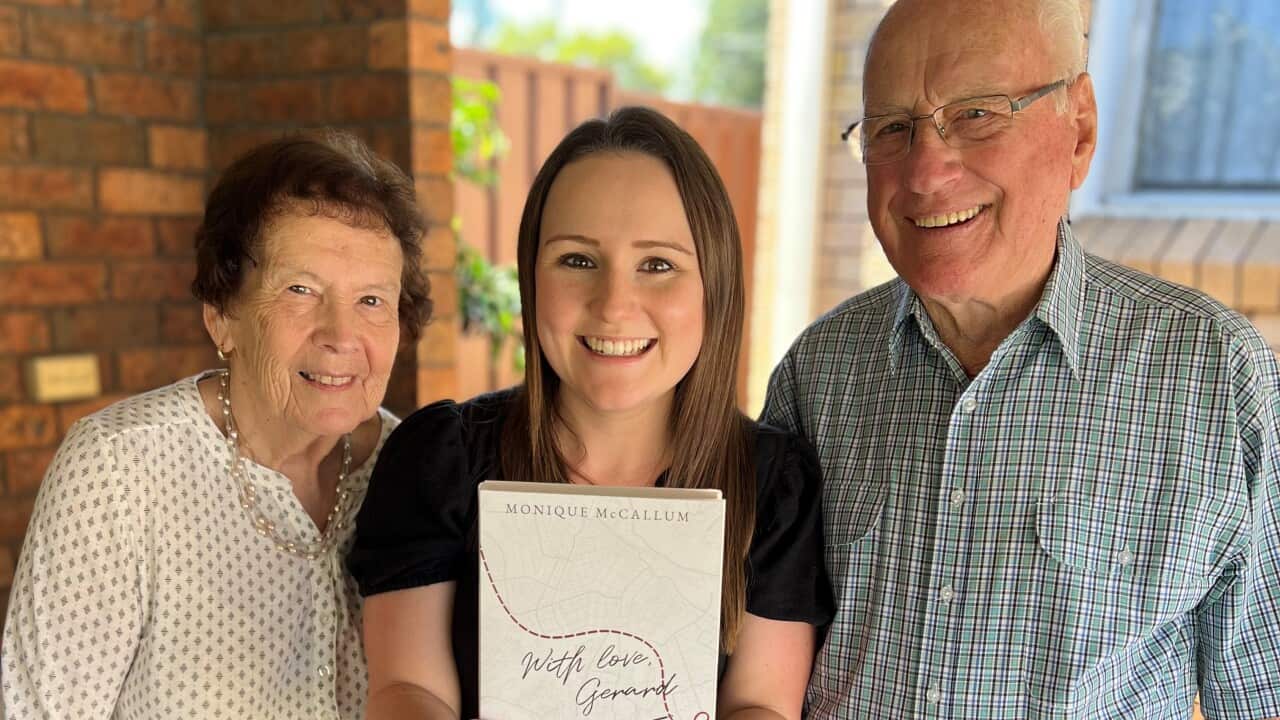 MONIQUE McCALLUM
With love,
Gerard